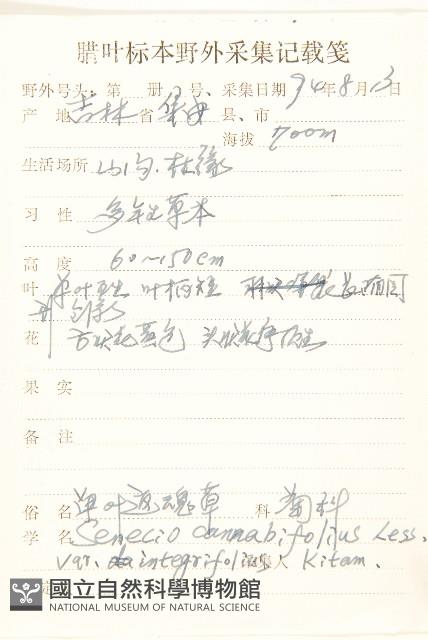 腊叶标本野外采集记载笺
野外号头：第 册 号、采集日期 94年8月13日
产 地 吉林 省 集安 县、市
海拔 700m
生活场所 山沟.林缘
习 性 多年生草本
高 度 60~150cm
叶 单叶互生 叶柄短
花 黄色
果 实
备 注
俗 名 单叶返魂草 科 菊科
学 名 Senecio cannabifolius Less.
var. integrifolius 集人 Kitam.
國立自然科學博物館
NATIONAL MUSEUM OF NATURAL SCIENCE